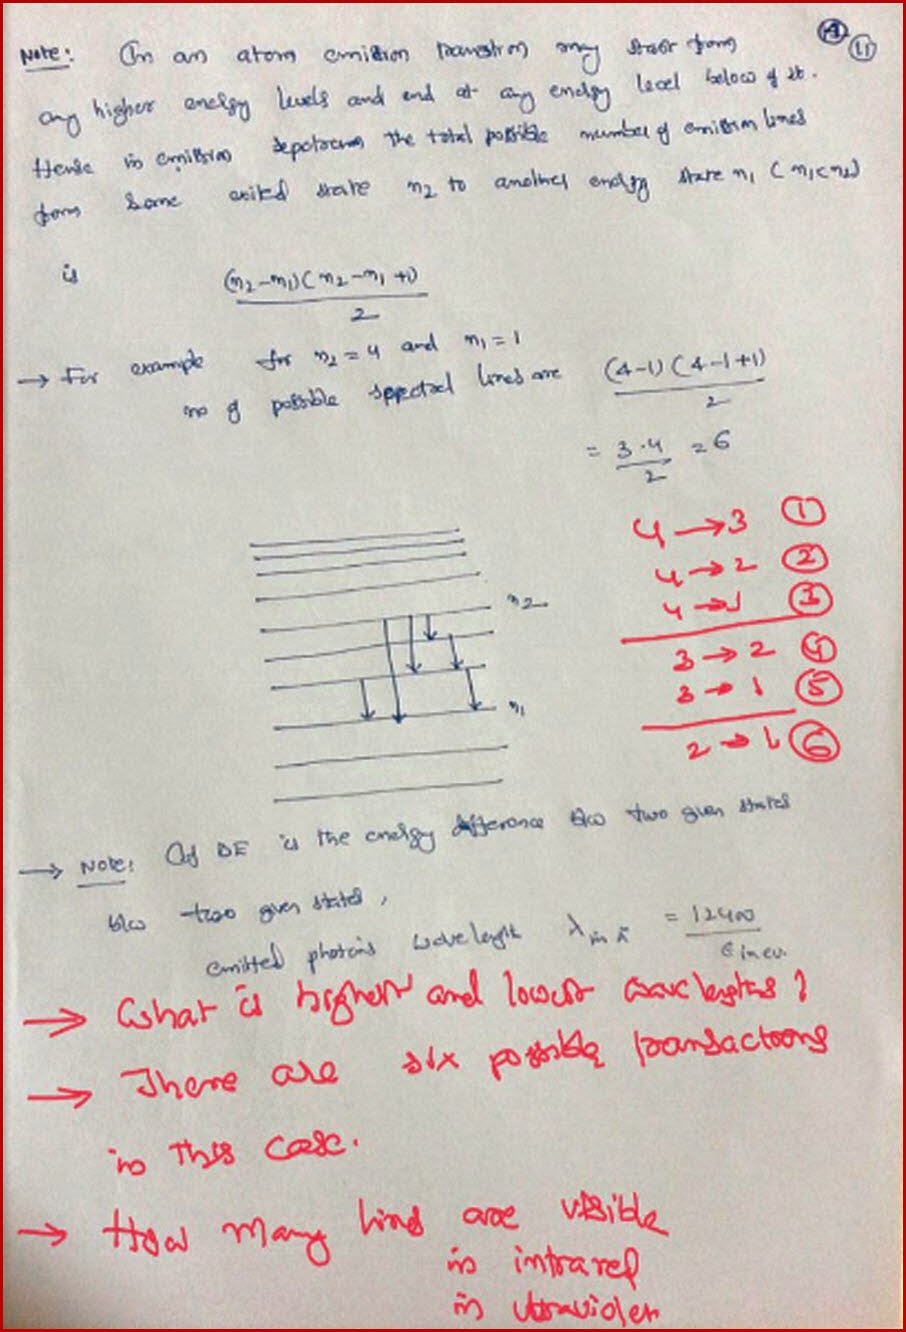 Note: In an atom emission transition may start from
any higher energy levels and end at any energy level below of it.
Hence in emission the total possible number of emission lines
from some exited state n₂ to another energy state n₁ (n₁<n₂)
is (n₂-n₁)(n₂-n₁+1)
2
→ For example for n₂ = 4 and n₁ = 1
no of possible spectral lines are (4-1)(4-1+1)
2
= 3·4 = 6
2
4 → 3 ①
4 → 2 ②
4 → 1 ③
3 → 2 ④
3 → 1 ⑤
2 → 1 ⑥
n₂
n₁
→ Note: If DE is the energy difference b/w two given states
b/w two given states,
emitted photons wavelength λ in Å = 12400
E in ev.
→ What is highest and lowest wavelengths?
→ There are six possible transactions
in this case.
→ How many lines are visible
in intrared
in